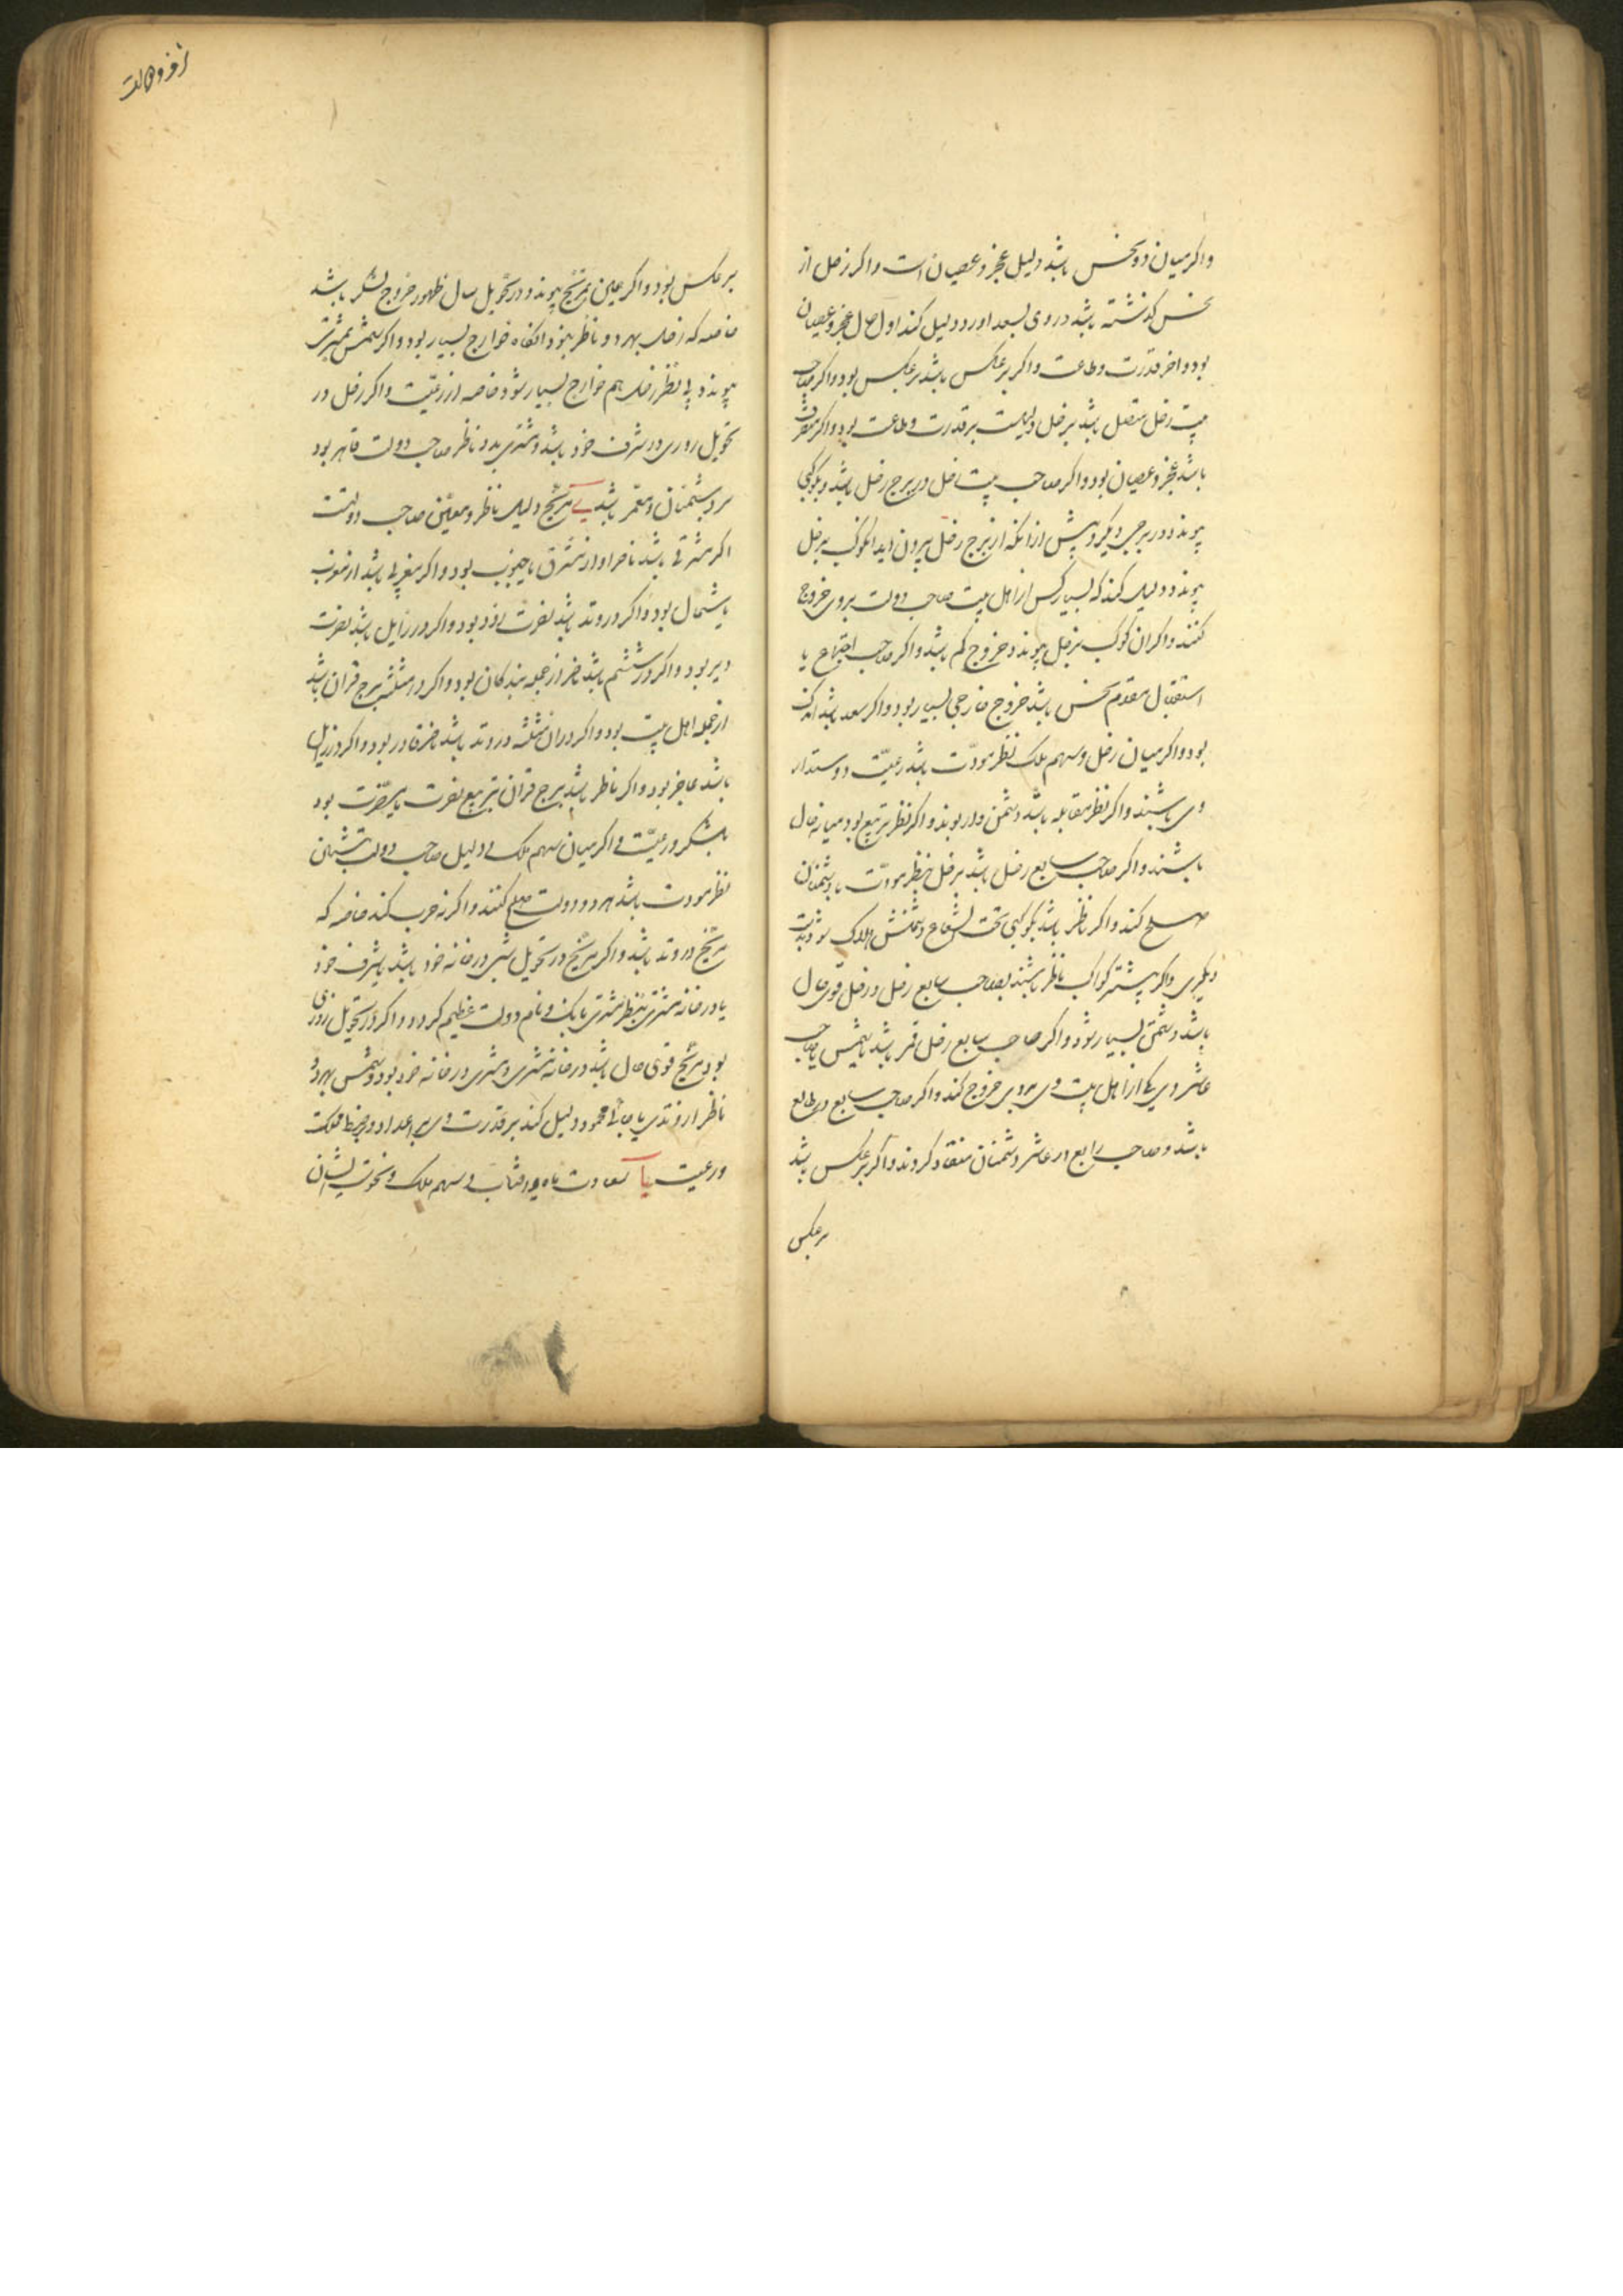 واکر میان دو نحس باشد دلیل عجز و عصیان است و اکر زحل از
نحس کذشته باشد و روی بسعد اورد دلیل کند اول حال عجز و عصیان
بود و اخر قدرت و طاعت و اکر بر عکس باشد بر عکس بود و اکر صاحب
بیت زحل متصل باشد بزحل دلیلست بر قدرت و طاعت بود و اکر منصرف
باشد عجز و عصیان بود و اکر صاحب بیت زحل در برج زحل باشد و بکوکبی
پیوندد در برجی دیکر و پیش از انکه از برج زحل بیرون اید ان کوکب بزحل
پیوندد دلیل کند که بسیار کس از اهل بیت صاحب دولت بروی خروج
کنند و اکر ان کوکب بزحل پیوندد خروج کم باشد و اکر صاحب اجتماع یا
استقبال مقدم نحس باشد خروج خارجی بسیار بود و اکر سعد باشد اندک
بود و اکر میان زحل و سهم ملک نظر مودّت باشد رعیّت دوستدار
وی باشند و اکر نظر مقابله باشد دشمن دار بوند و اکر نظر تربیع بود میانه حال
باشند و اکر صاحب سابع زحل باشد بزحل بنظر مودّت با دشمنان
صلح کند و اکر ناظر باشد بکوکبی تحت الشعاع دشمنش هلاک شود بدست
دیکری و اکر بیشتر کواکب ناظر باشند بصاحب سابع زحل و زحل قوی حال
باشد دشمن بسیار شود و اکر صاحب سابع زحل قمر باشد یا شمس یا صاحب
عاشر وی یکی از اهل بیت وی بروی خروج کند و اکر صاحب سابع در طالع
باشد و صاحب رابع در عاشر دشمنان منقاد کردند و اکر بر عکس باشد
بر عکس
بر عکس بود و اکر بمریخ پیوندد در تحویل سال ظهور خروج لشکر باشد
خاصه که زحل بهر دو ناظر بود انکاه خوارج بسیار بود و اکر شمس بمشتری
پیوندد بی نظر زحل هم خوارج بسیار شود خاصه از رعیّت و اکر زحل در
تحویل روزی در شرف خود باشد و مشتری بدو ناظر صاحب دولت قاهر بود
بر دشمنان و معمّر باشد ی مریخ دلیل ناظر و معیّن صاحب دولتست
اکر مشرقی باشد ناصر او از مشرق یا جنوب بود و اکر مغربی باشد از مغرب
یا شمال بود و اکر در وتد باشد نصرت زود بود و اکر در زایل باشد نصرت
دیر بود و اکر در ششم باشد ناصر از جمله بندکان بود و اکر در مثلثه برج قران باشد
از جمله اهل بیت بود و اکر در ان مثلثه در وتد باشد ناصر قادر بود و اکر در زایل
باشد عاجز بود و اکر ناظر باشد ببرج قران بتربیع نصرت یا مضرّت بود
بلشکر و رعیّت و اکر میان سهم ملک و دلیل صاحب دولت دشمنان
نظر مودت باشد هر دو دولت صلح کنند و اکر نه حرب کند خاصه که
مریخ در وتد باشد و اکر مریخ در تحویل شبی در خانه خود باشد یا شرف خود
یا در خانه مشتری بنظر مشتری بانک و نام دولت عظیم کردد و اکر در تحویل روزی
بود و مریخ قوی حال باشد در خانه مشتری و مشتری در خانه خود بود و شمس بهر دو
ناظر از وتدی یا جائی محمود دلیل کند بر قدرت وی بر اعدا و ضبط مملکت
و رعیت یا سعادت ماه و افتاب و سهم ملک و نحوست ایشان